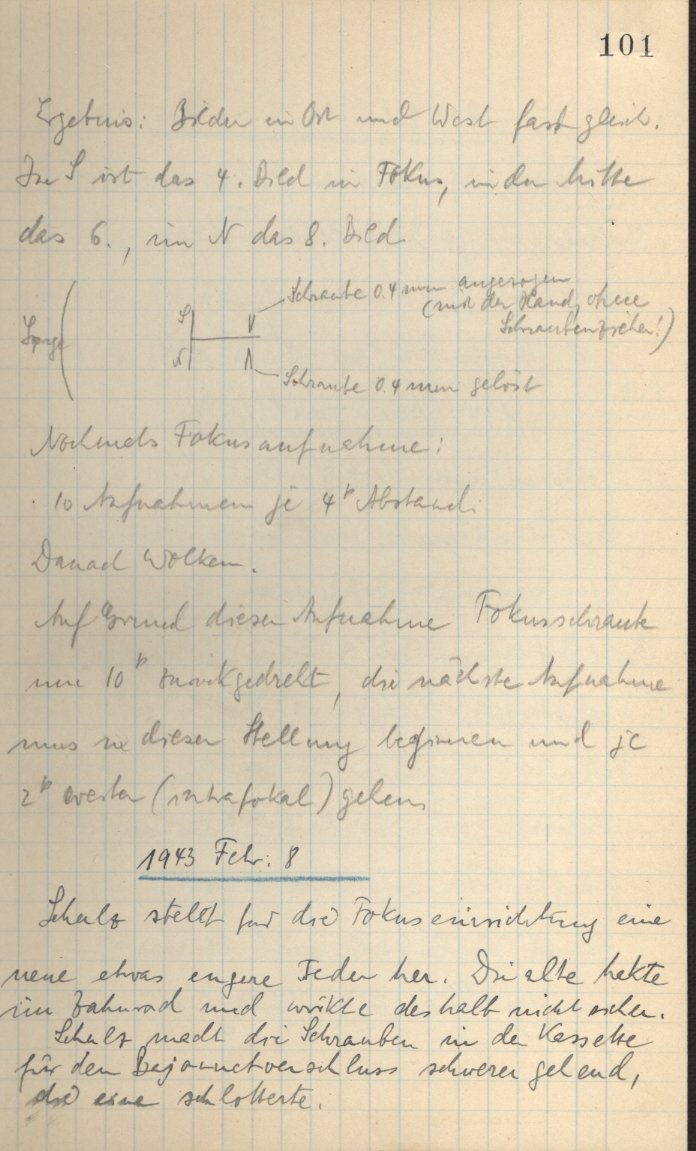 101
Ergebnis: Bilder in Ost und West fast gleich.
Im S ist das 4. Bild in Fokus, in der Mitte
das 6., im N das 8. Bild
Schraube 0.4 mm angezogen
(mit der Hand, ohne
Schraubenzieher!)
S
N
Schraube 0.4 mm gelöst
Nochmals Fokusaufnahme:
10 Aufnahmen je 4ᵖ Abstand.
Danach Wolken.
Auf Grund dieser Aufnahme Fokusschraube
um 10ᵖ zurückgedreht, die nächste Aufnahme
muss in dieser Stellung beginnen und je
2ᵖ weiter (intrafokal) gehen.
1943 Febr. 8
Schulz stellt für die Fokuseinrichtung eine
neue etwas engere Feder her. Die alte hakte
im Zahnrad und wirkte deshalb nicht sicher.
Schulz macht die Schrauben in der Kassette
für den Bajonnetverschluss schwerer gehend,
die eine schlotterte.